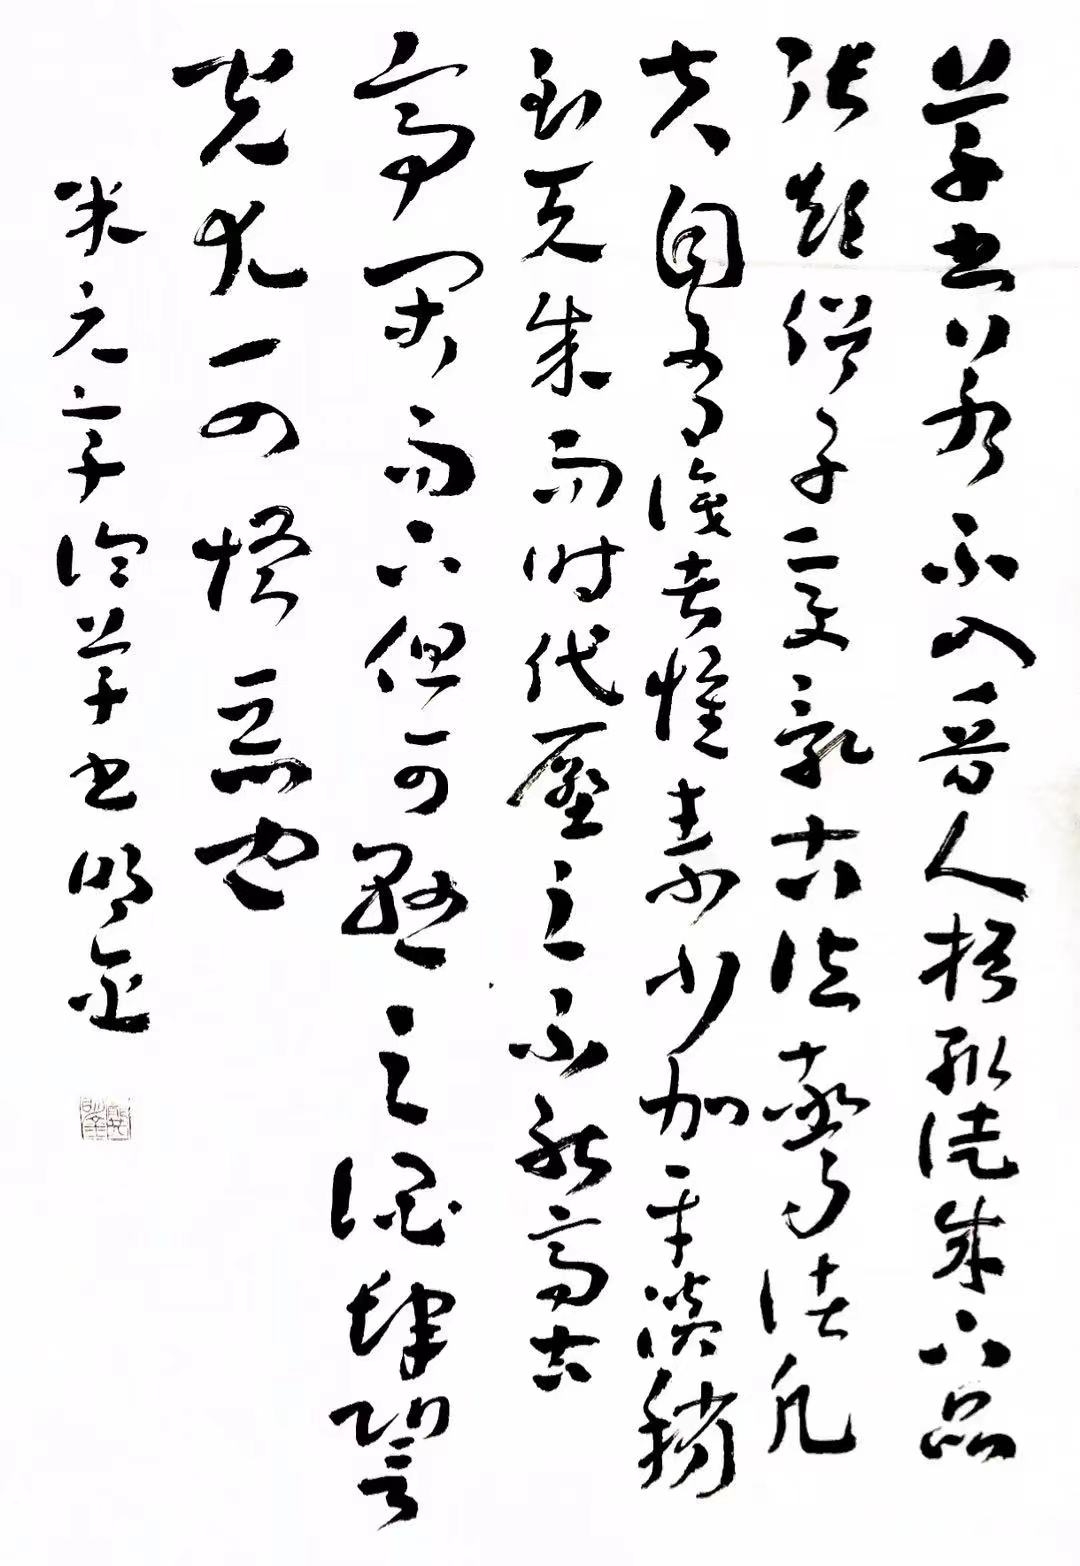 草書若不入晉人格輒徒成下品
張顛俗子變亂古法驚諸凡
夫自有識者懷素少加平淡稍
到天成而時代壓之不能高古
高閑而下但可懸之酒肆䛒
光尤可憎惡也
米元章論草書 明